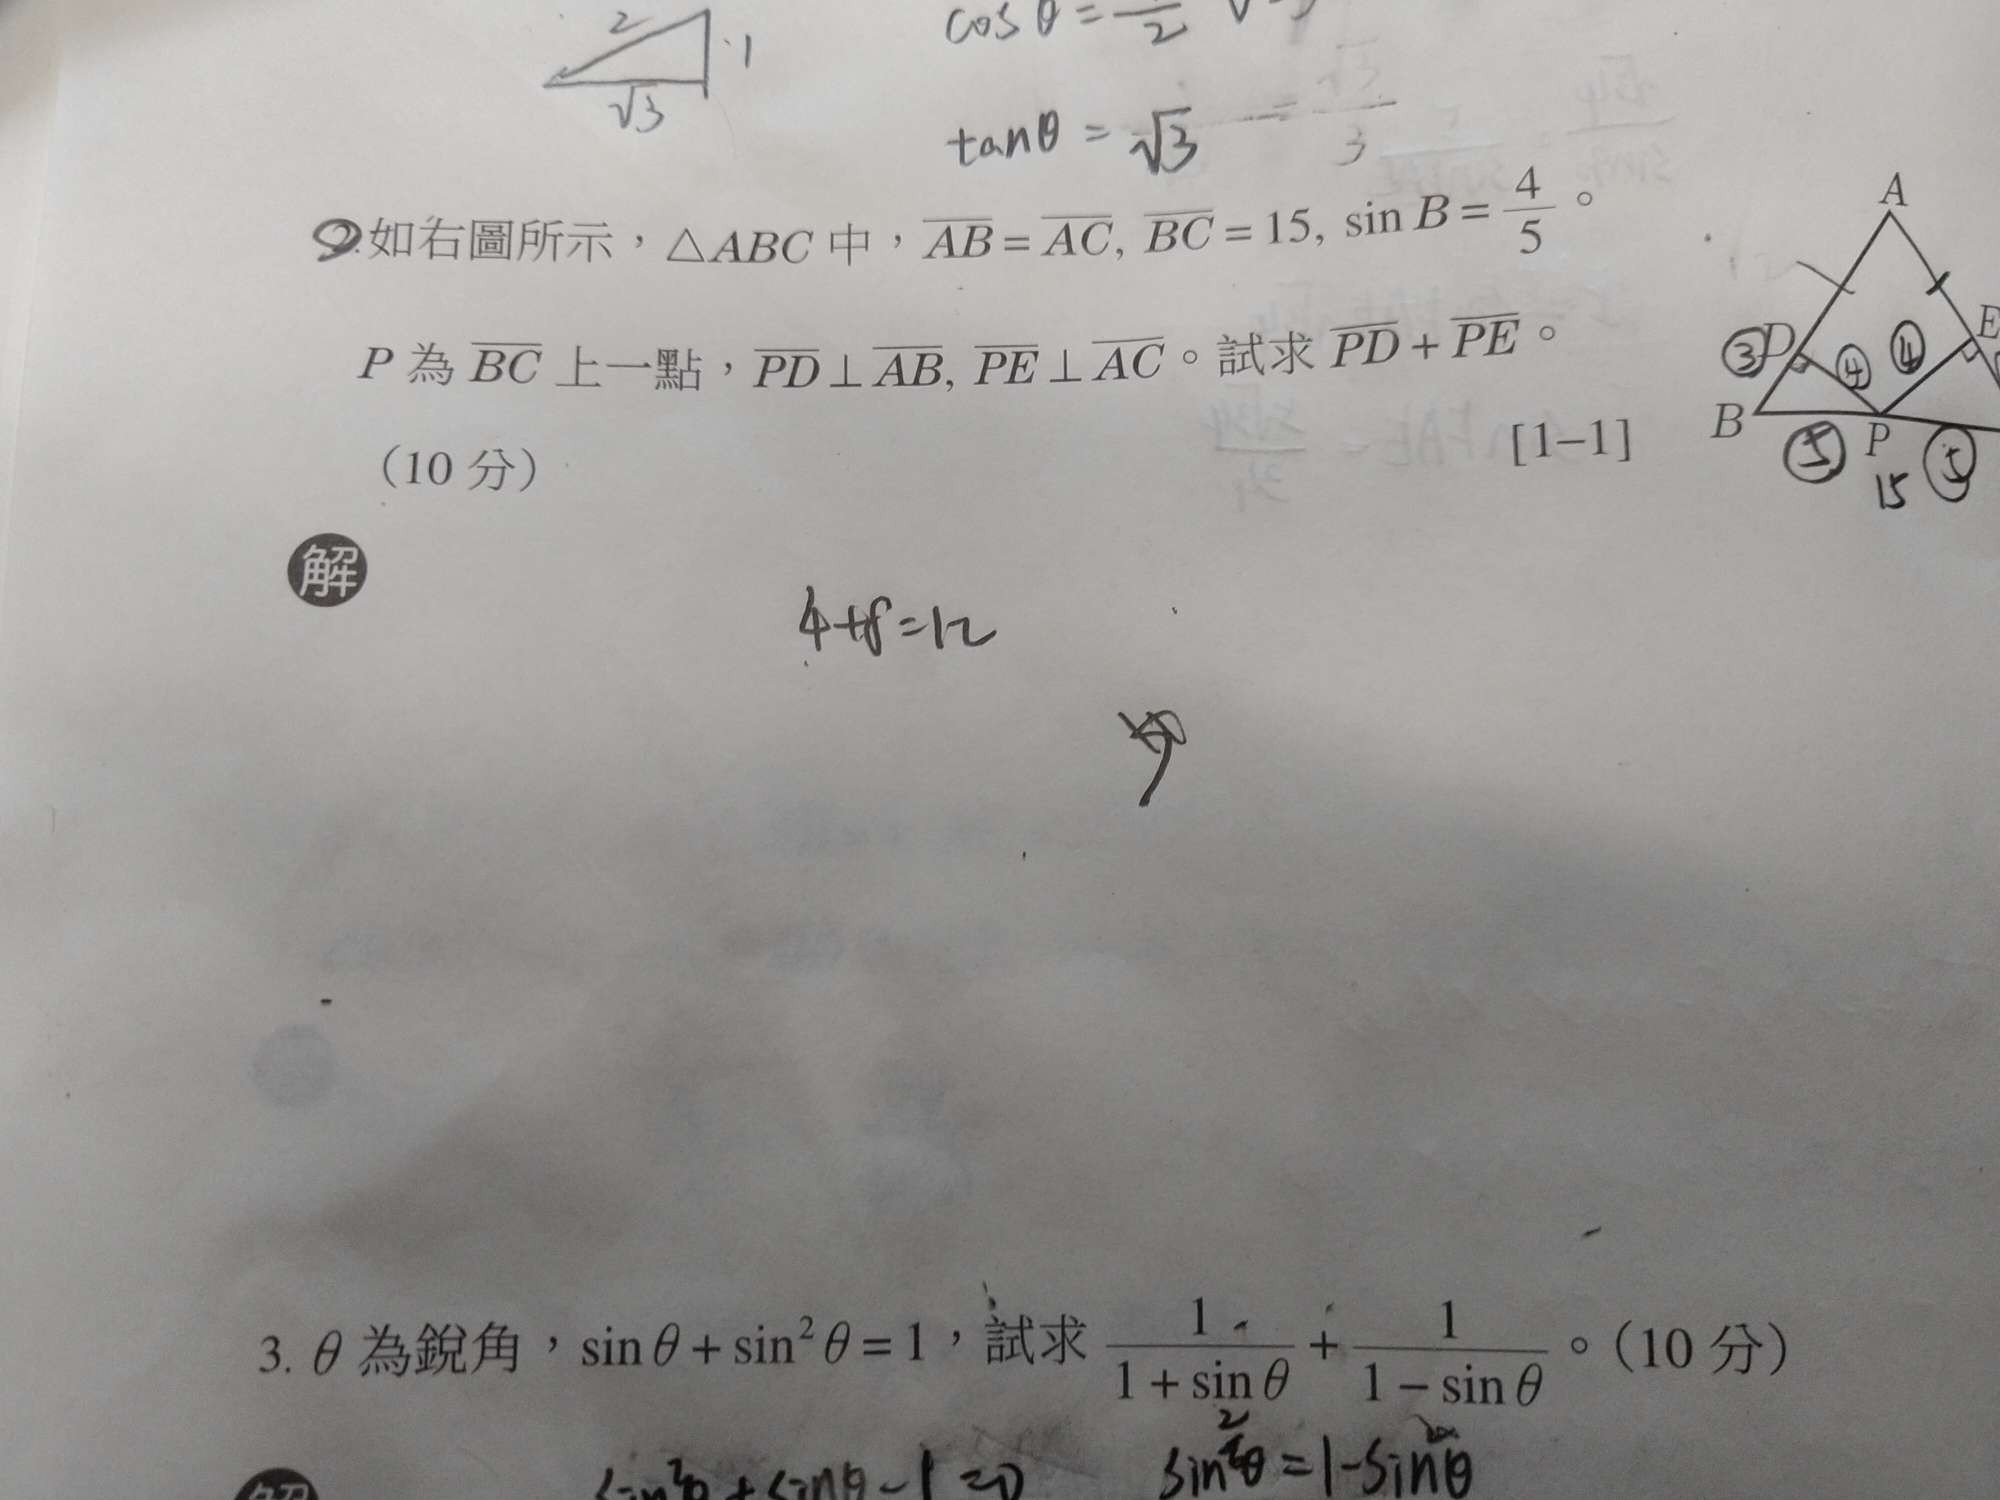 2
1
√3
cos θ =
tanθ = √3 = √3/3
2.如右圖所示,△ABC 中,AB = AC, BC = 15, sin B = 4/5。
P 為 BC 上一點,PD ⊥ AB, PE ⊥ AC。試求 PD + PE。
(10 分) [1–1]
A
D
E
B
P
③
④
④
⑤
⑤
15
解
4+8=12
3. θ 為銳角,sin θ + sin² θ = 1,試求 1/(1 + sin θ) + 1/(1 − sin θ)。(10 分)
解
sin²θ + sinθ − 1 = 0
sin²θ = 1 − sinθ